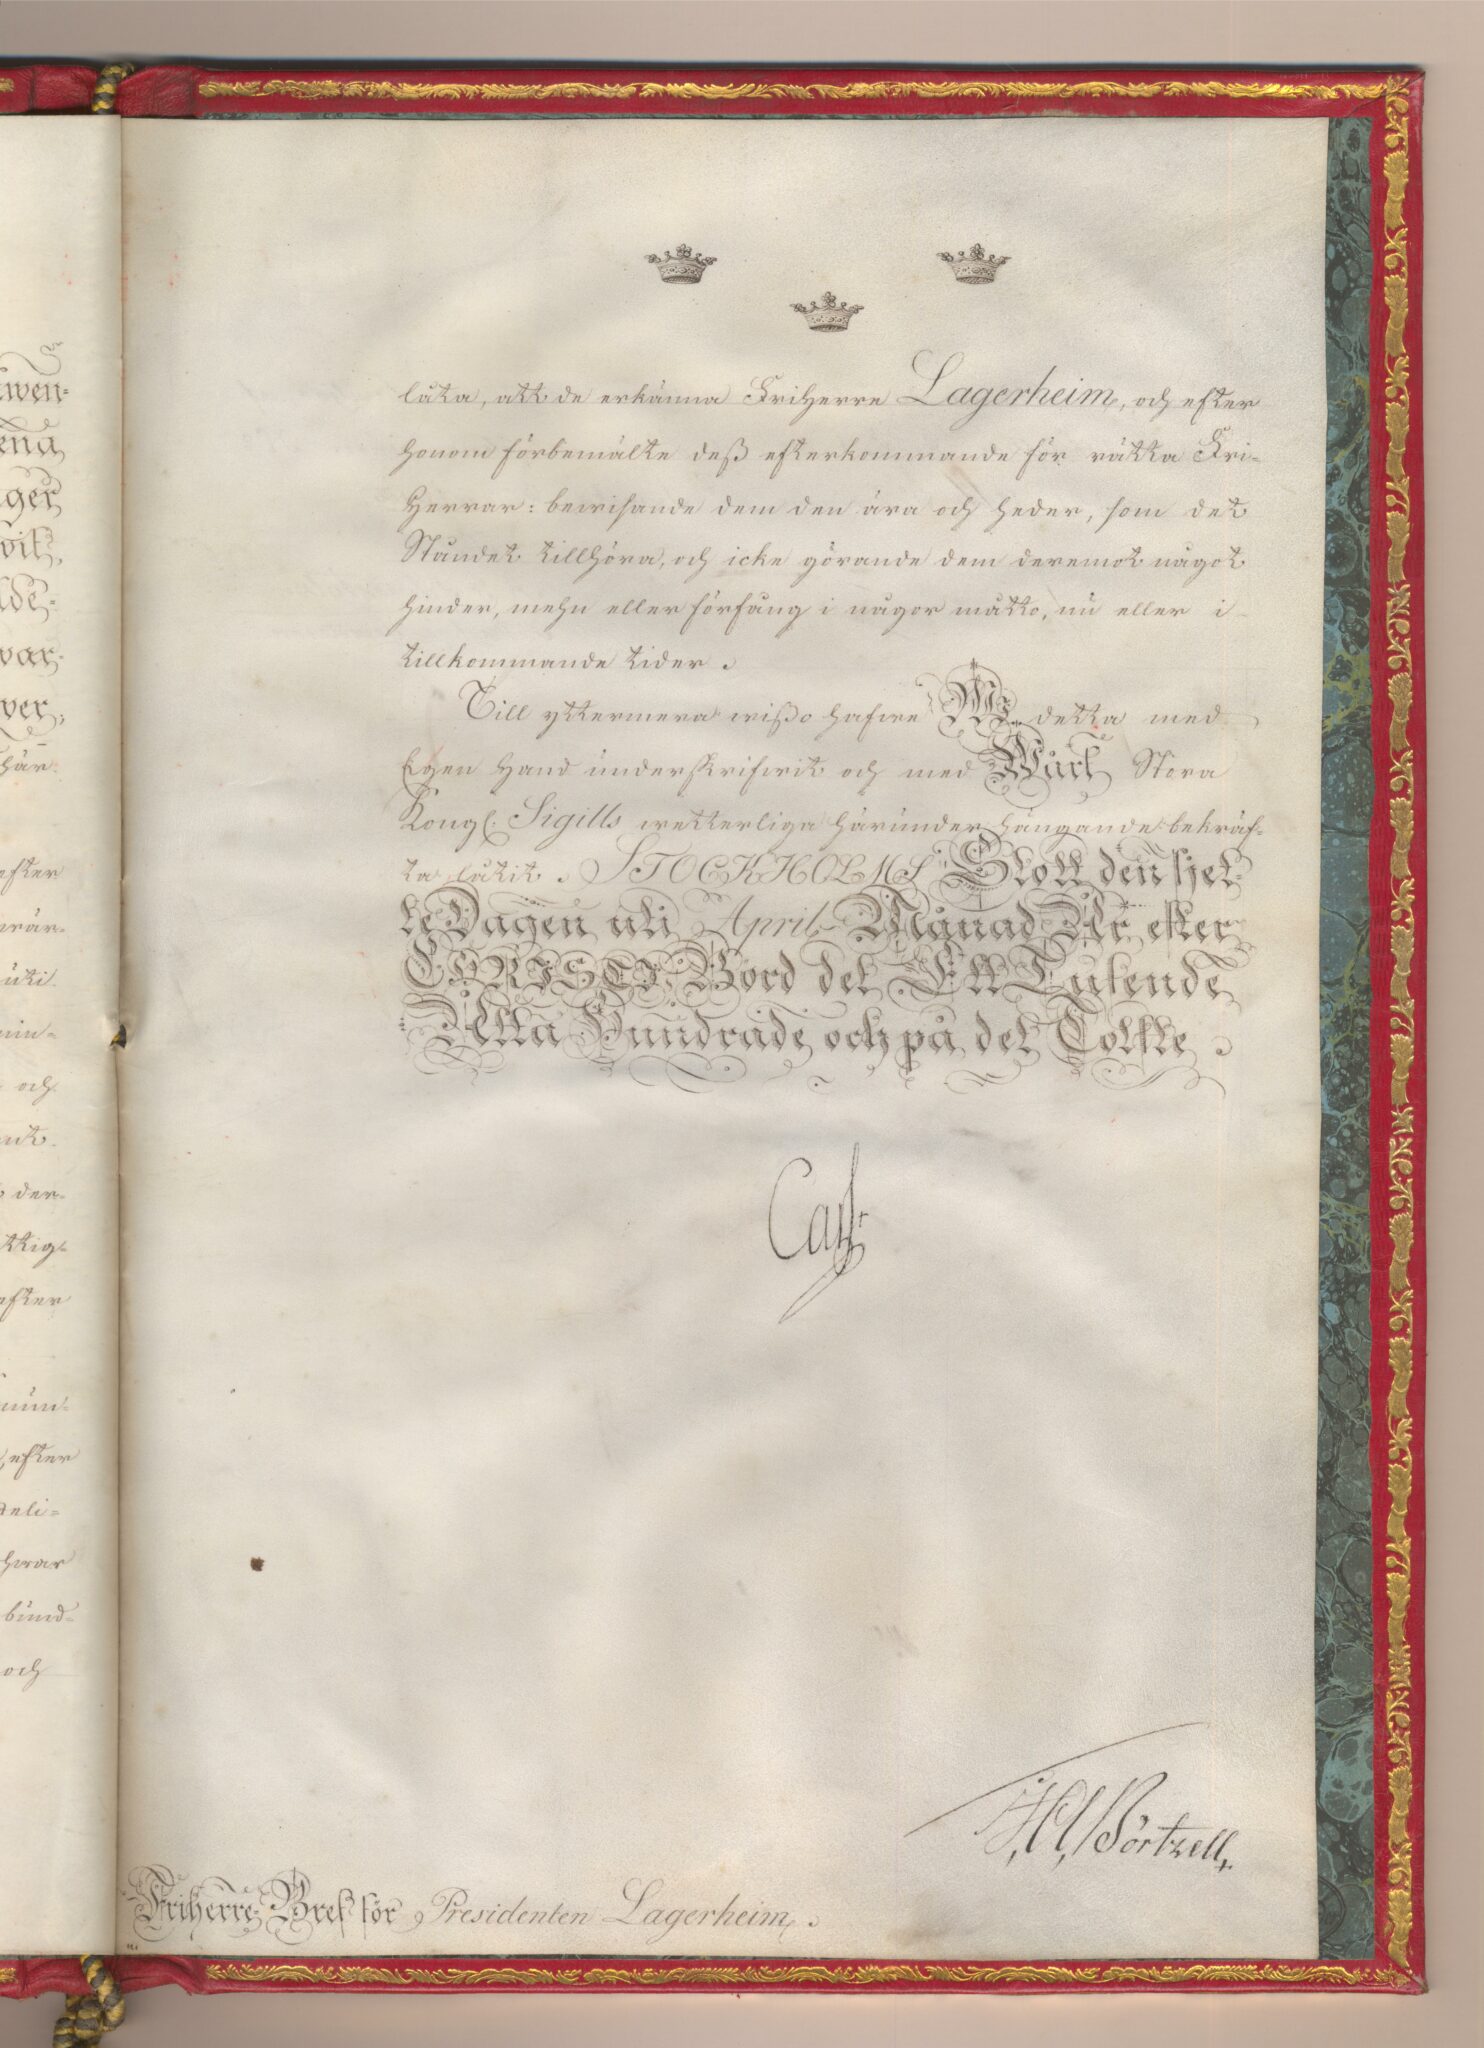 wen-
ena
ger
vik,
de-
var-
ver,
här
efter
wär-
ruti
min-
och
der-
ttig-
efter
mün-
, efter
teli-
hwar
bünd-
och
låta, att de erkänna FriHerre Lagerheim, och efter
honom förbemälte deß efterkommande för rätta Fri-
Herrar: bewisande dem den ära och heder, som det
Ståndet tillhöra, och icke görande dem deremot något
hinder, mehn eller förfång i någor måtto, nu eller i
tillkommande tider.
Till yttermera wißo hafwe Wi detta med
Egen Hand underskrifwit och med Wårt Stora
Kongl: Sigills wetterliga härunder hängande bekräf-
ta låtit. STOCKHOLMS Slott den sjet-
te Dagen uti April Månad År efter
CHRISTI Börd det Ett Tusende
Åtta Hundrade och på det Tolfte.
Carl
H. Börtzell
Friherre-Bref för Presidenten Lagerheim.